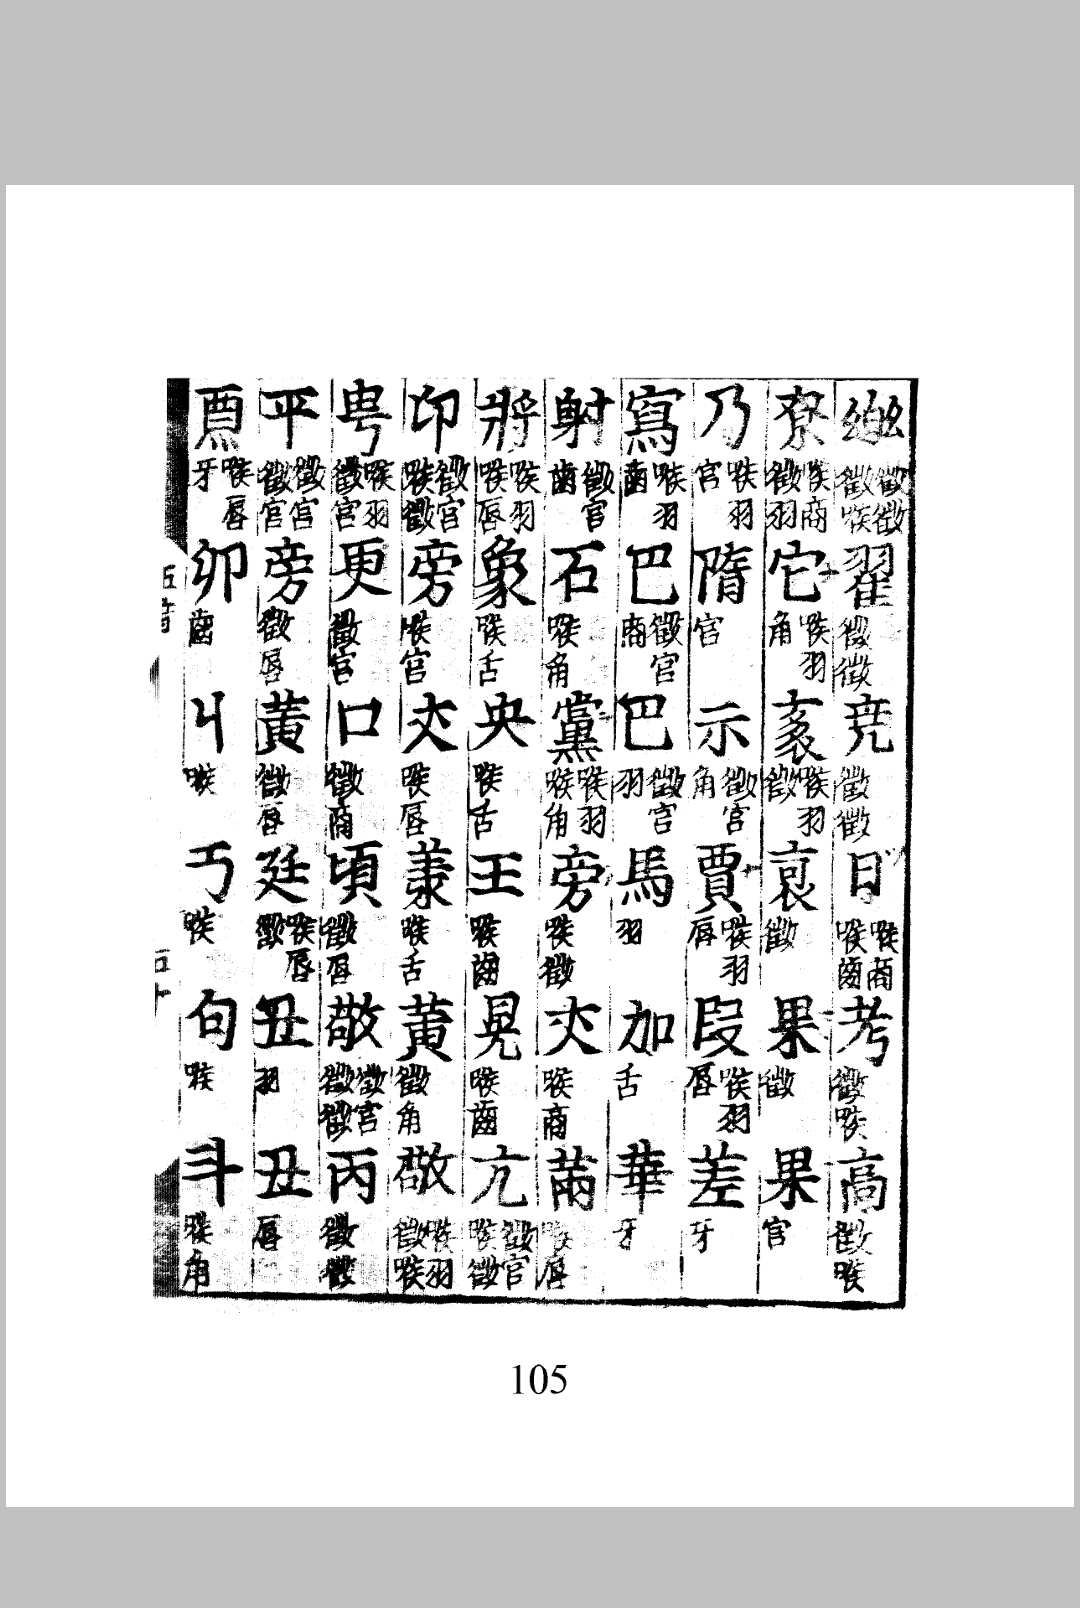 徵徵喉徵 翟 徵徵 堯 徵徵 日 喉商喉齒 考 徵喉 高 徵喉
尞 喉商徵羽 它 喉羽角 喉羽徵 徵 果 徵 果 官
乃 喉羽官 隋 官 示 徵官角 賈 喉羽唇 段 喉羽唇 差 牙
寫 喉羽齒 巴 徵官商 巴 徵官羽 馬 羽 加 舌 華 牙
射 徵官齒 石 喉角 黨 喉羽喉角 旁 喉徵 夾 喉商 㒼 喉唇
將 喉羽喉唇 象 喉舌 央 喉舌 王 喉齒 晃 喉齒 亢 徵官喉徵
卬 徵官喉徵 旁 喉官 夾 喉唇 喉舌 黃 徵角 敬 喉羽徵喉
甹 喉羽徵官 更 徵官 口 徵商 頃 徵唇 敬 徵官徵徵 丙 徵徵
平 徵官徵官 旁 徵唇 黃 徵唇 廷 喉唇徵 丑 羽 丑 唇
喉唇牙 卯 齒 丩 喉 丂 喉 句 喉 斗 喉角
五十
105